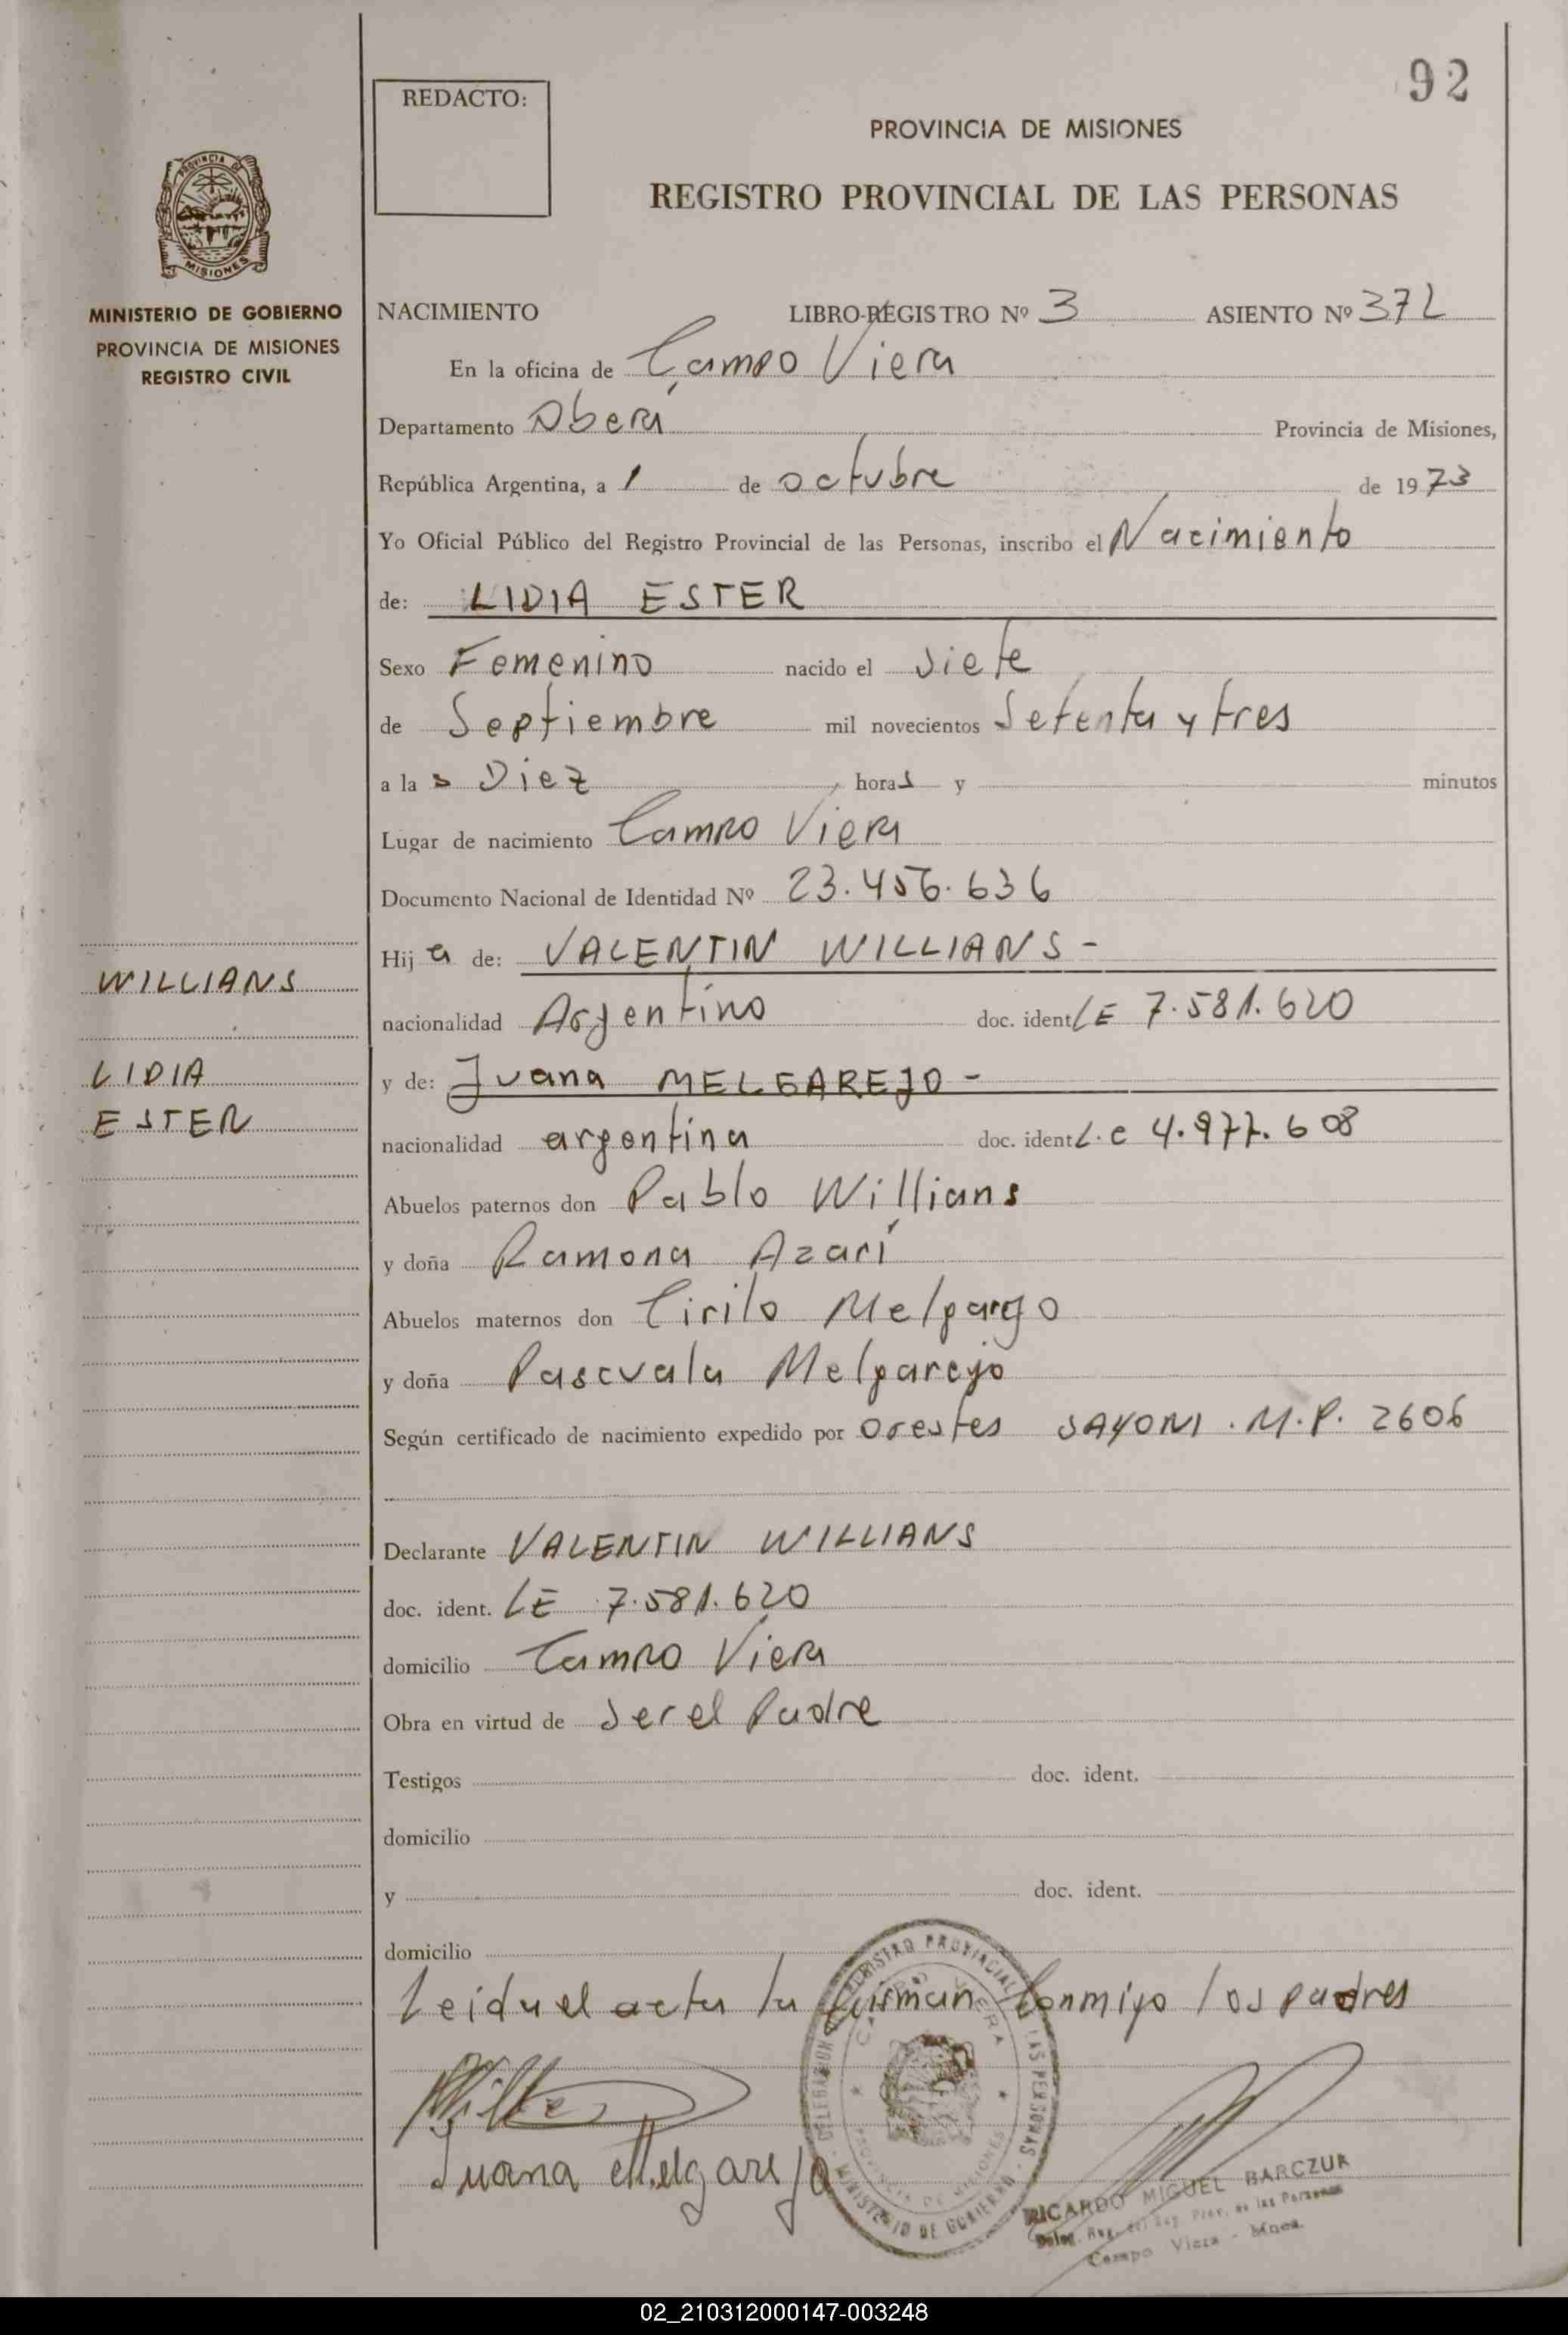 92
REDACTO:
PROVINCIA DE MISIONES
REGISTRO PROVINCIAL DE LAS PERSONAS
PROVINCIA DE
MISIONES
MINISTERIO DE GOBIERNO
PROVINCIA DE MISIONES
REGISTRO CIVIL
NACIMIENTO LIBRO-REGISTRO Nº 3 ASIENTO Nº 372
En la oficina de Campo Viera
Departamento Oberá Provincia de Misiones,
República Argentina, a 1 de octubre de 1973
Yo Oficial Público del Registro Provincial de las Personas, inscribo el Nacimiento
de: LIDIA ESTER
Sexo Femenino nacido el siete
de Septiembre mil novecientos Setenta y tres
a la s Diez horas y minutos
Lugar de nacimiento Campo Viera
Documento Nacional de Identidad Nº 23.456.636
Hija de: VALENTIN WILLIANS -
WILLIANS
nacionalidad Argentino doc. ident LE 7.581.620
LIDIA
y de: Juana MELGAREJO -
ESTER
nacionalidad argentina doc. ident L.c 4.977.608
Abuelos paternos don Pablo Willians
y doña Ramona Azarí
Abuelos maternos don Cirilo Melgarejo
y doña Pascuala Melgarejo
Según certificado de nacimiento expedido por Orestes SAYONI . M.P. 2606
Declarante VALENTIN WILLIANS
doc. ident. LE 7.581.620
domicilio Campo Viera
Obra en virtud de ser el Padre
Testigos doc. ident.
domicilio
y doc. ident.
domicilio
Leida el acta la firman conmigo los padres
Juana Melgarejo
DELEGACION REGISTRO PROVINCIAL DE LAS PERSONAS
CAMPO VIERA
PROVINCIA DE MISIONES
MINISTERIO DE GOBIERNO
RICARDO MIGUEL BARCZUK
Deleg. Reg. del Reg. Prov. de las Personas
Campo Viera - Mnes.
02_210312000147-003248